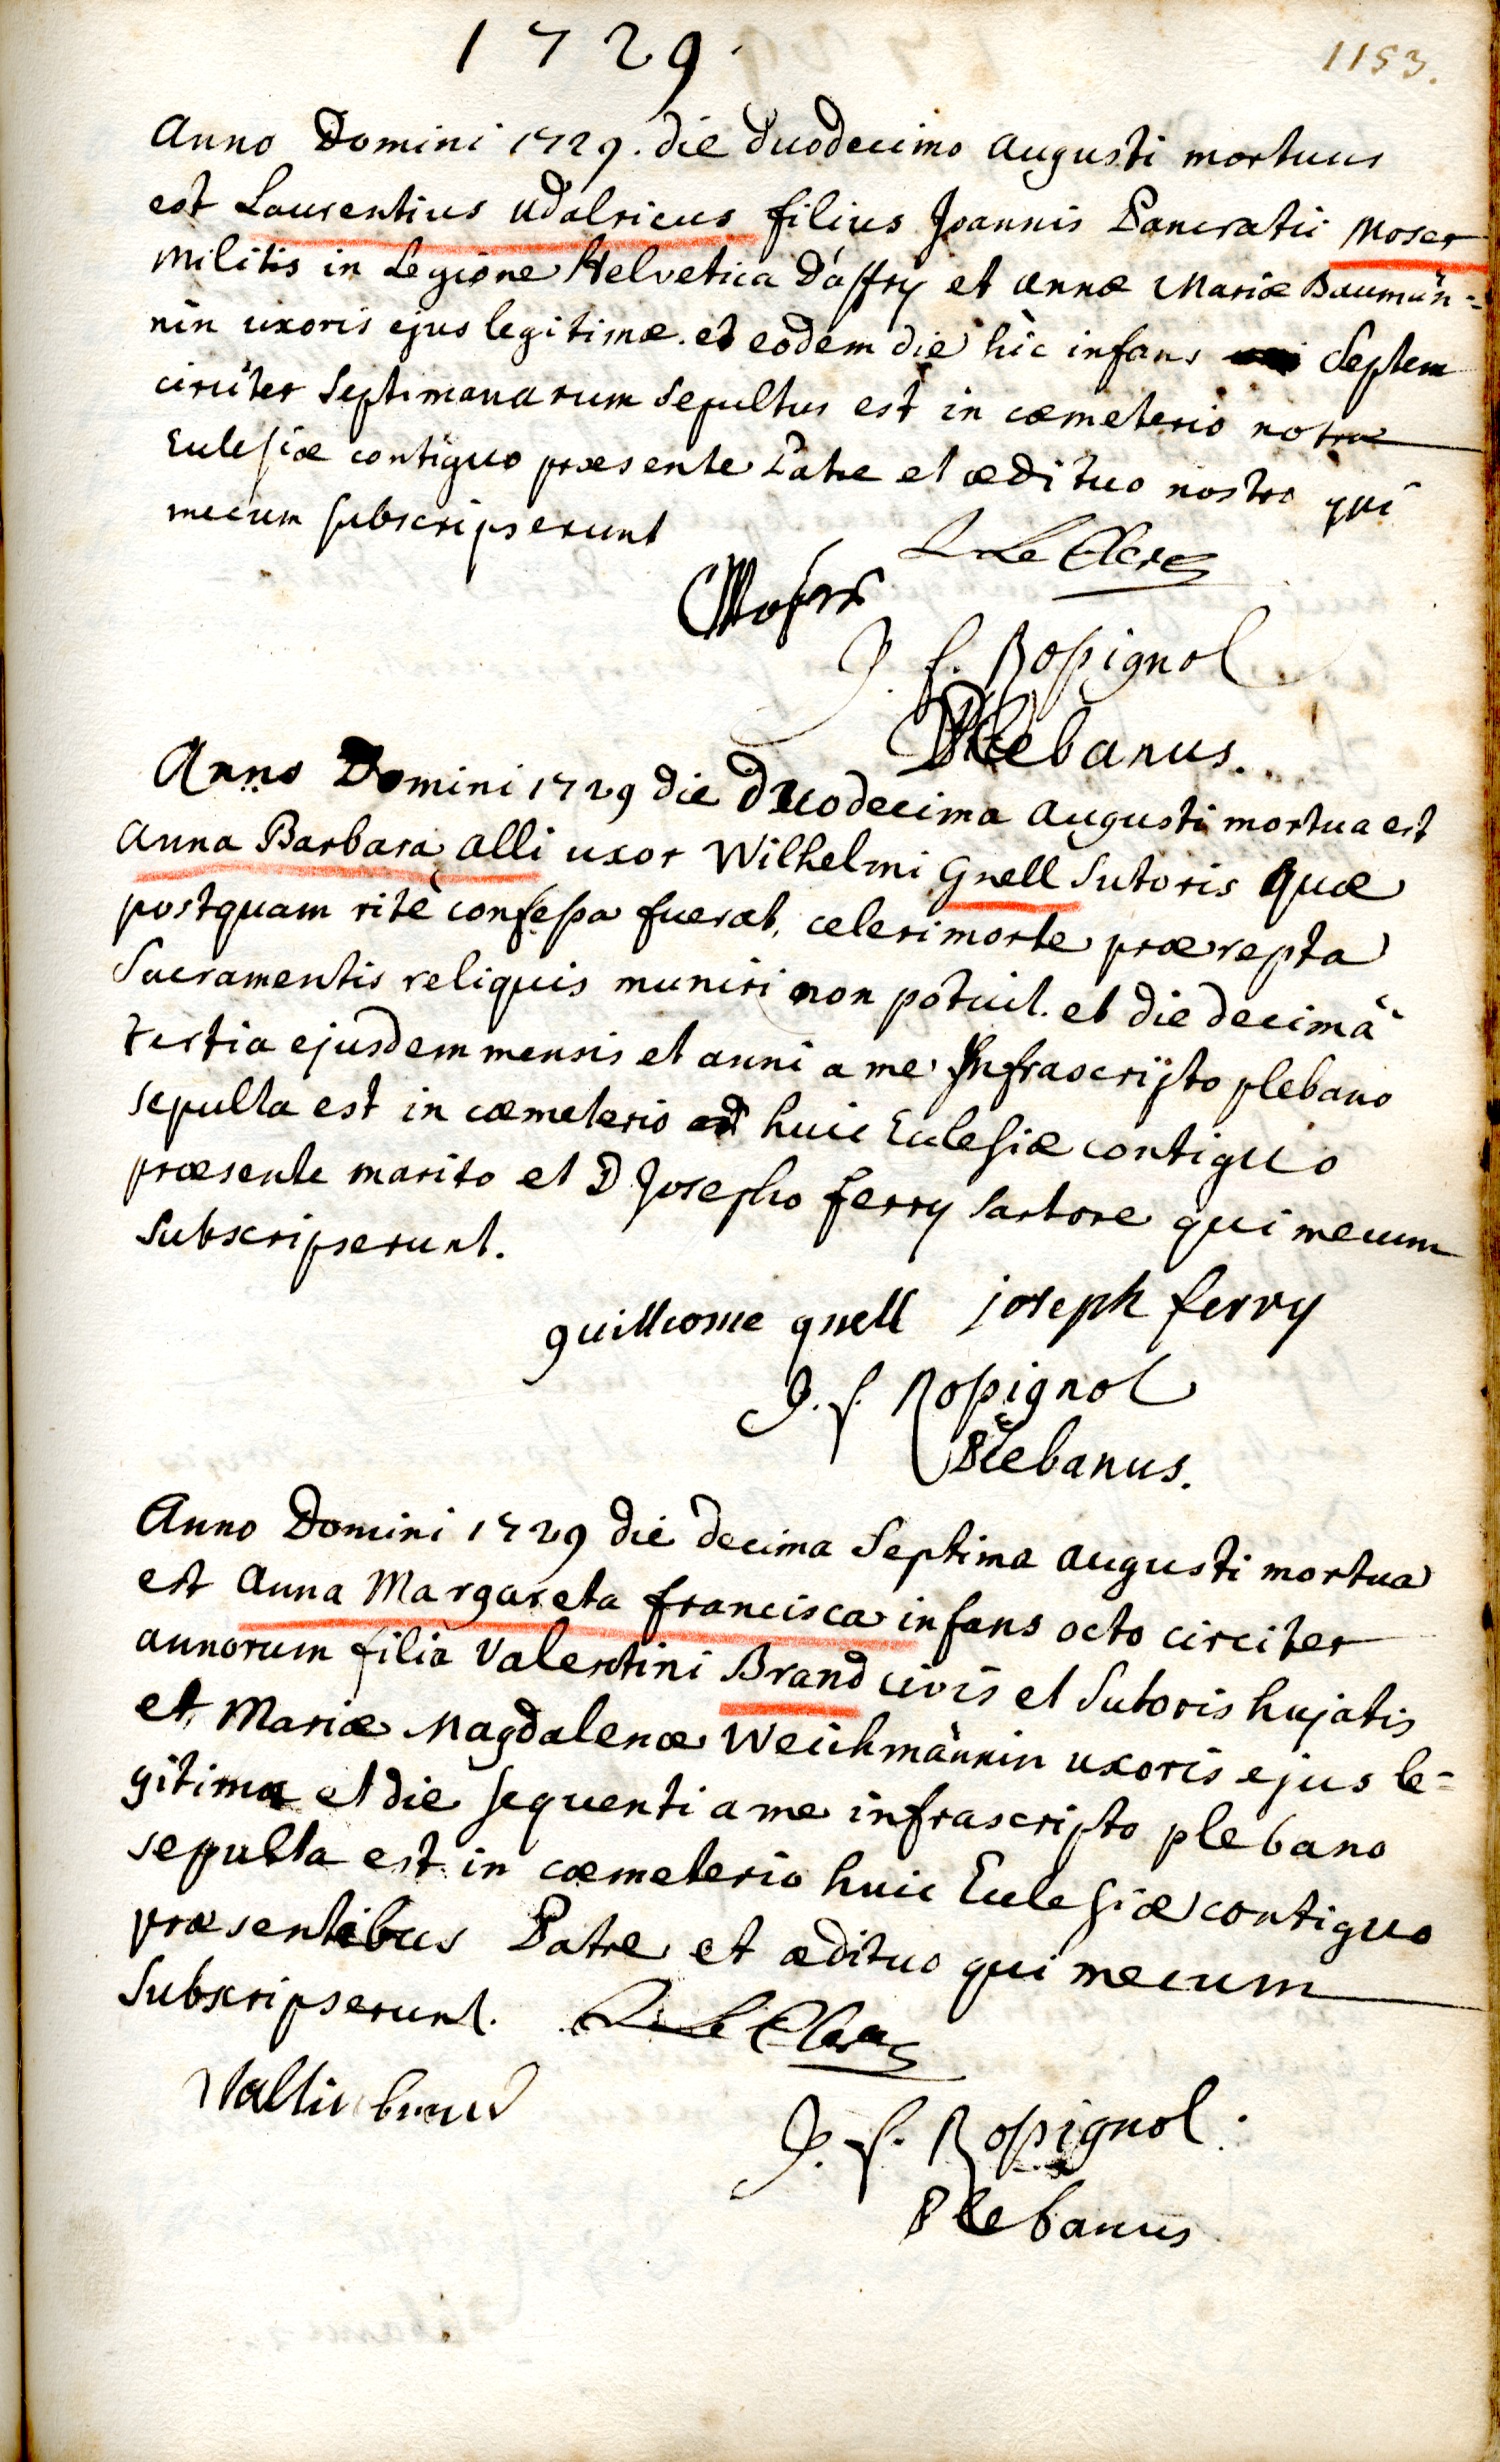 1729.
1153.
Anno Domini 1729. die duodecimo Augusti mortuus
est Laurentius Udalricus filius Joannis Pancratii Moser
Militis in Legione Helvetica D'affry et Annæ Mariæ Baumän-
nin uxoris ejus legitimæ. et eodem die hic infans Septem
circiter Septimanarum Sepultus est in cœmeterio nostræ
Ecclesiæ contiguo præsente Patre et ædituo nostro qui
mecum subscripserunt
L Le Clerc
Moser
J. f. Rossignol
Plebanus.
Anno Domini 1729 die duodecima Augusti mortua est
Anna Barbara Alli uxor Wilhelmi Gnell Sutoris Quæ
postquam ritè confessa fuerat, celeri morte prærepta
Sacramentis reliquis muniri non potuit. et die decimâ
tertia ejusdem mensis et anni a me Infrascripto plebano
sepulta est in cœmeterio huic Ecclesiæ contiguo
præsente marito et D Josepho ferry Sartore qui mecum
Subscripserunt.
guillaome gnell joseph ferry
J. f. Rossignol
Plebanus.
Anno Domini 1729 die decima Septima Augusti mortua
est Anna Margareta francisca infans octo circiter
annorum filia Valentini Brand civis et Sutoris hujatis
et Mariæ Magdalenæ Weichmännin uxoris ejus le-
gitimæ et die sequenti a me infrascripto plebano
sepulta est in cœmeterio huic Ecclesiæ contiguo
præsentibus Patre et ædituo qui mecum
Subscripserunt. L Le Clerc
Valtin brand
J. f. Rossignol.
Plebanus